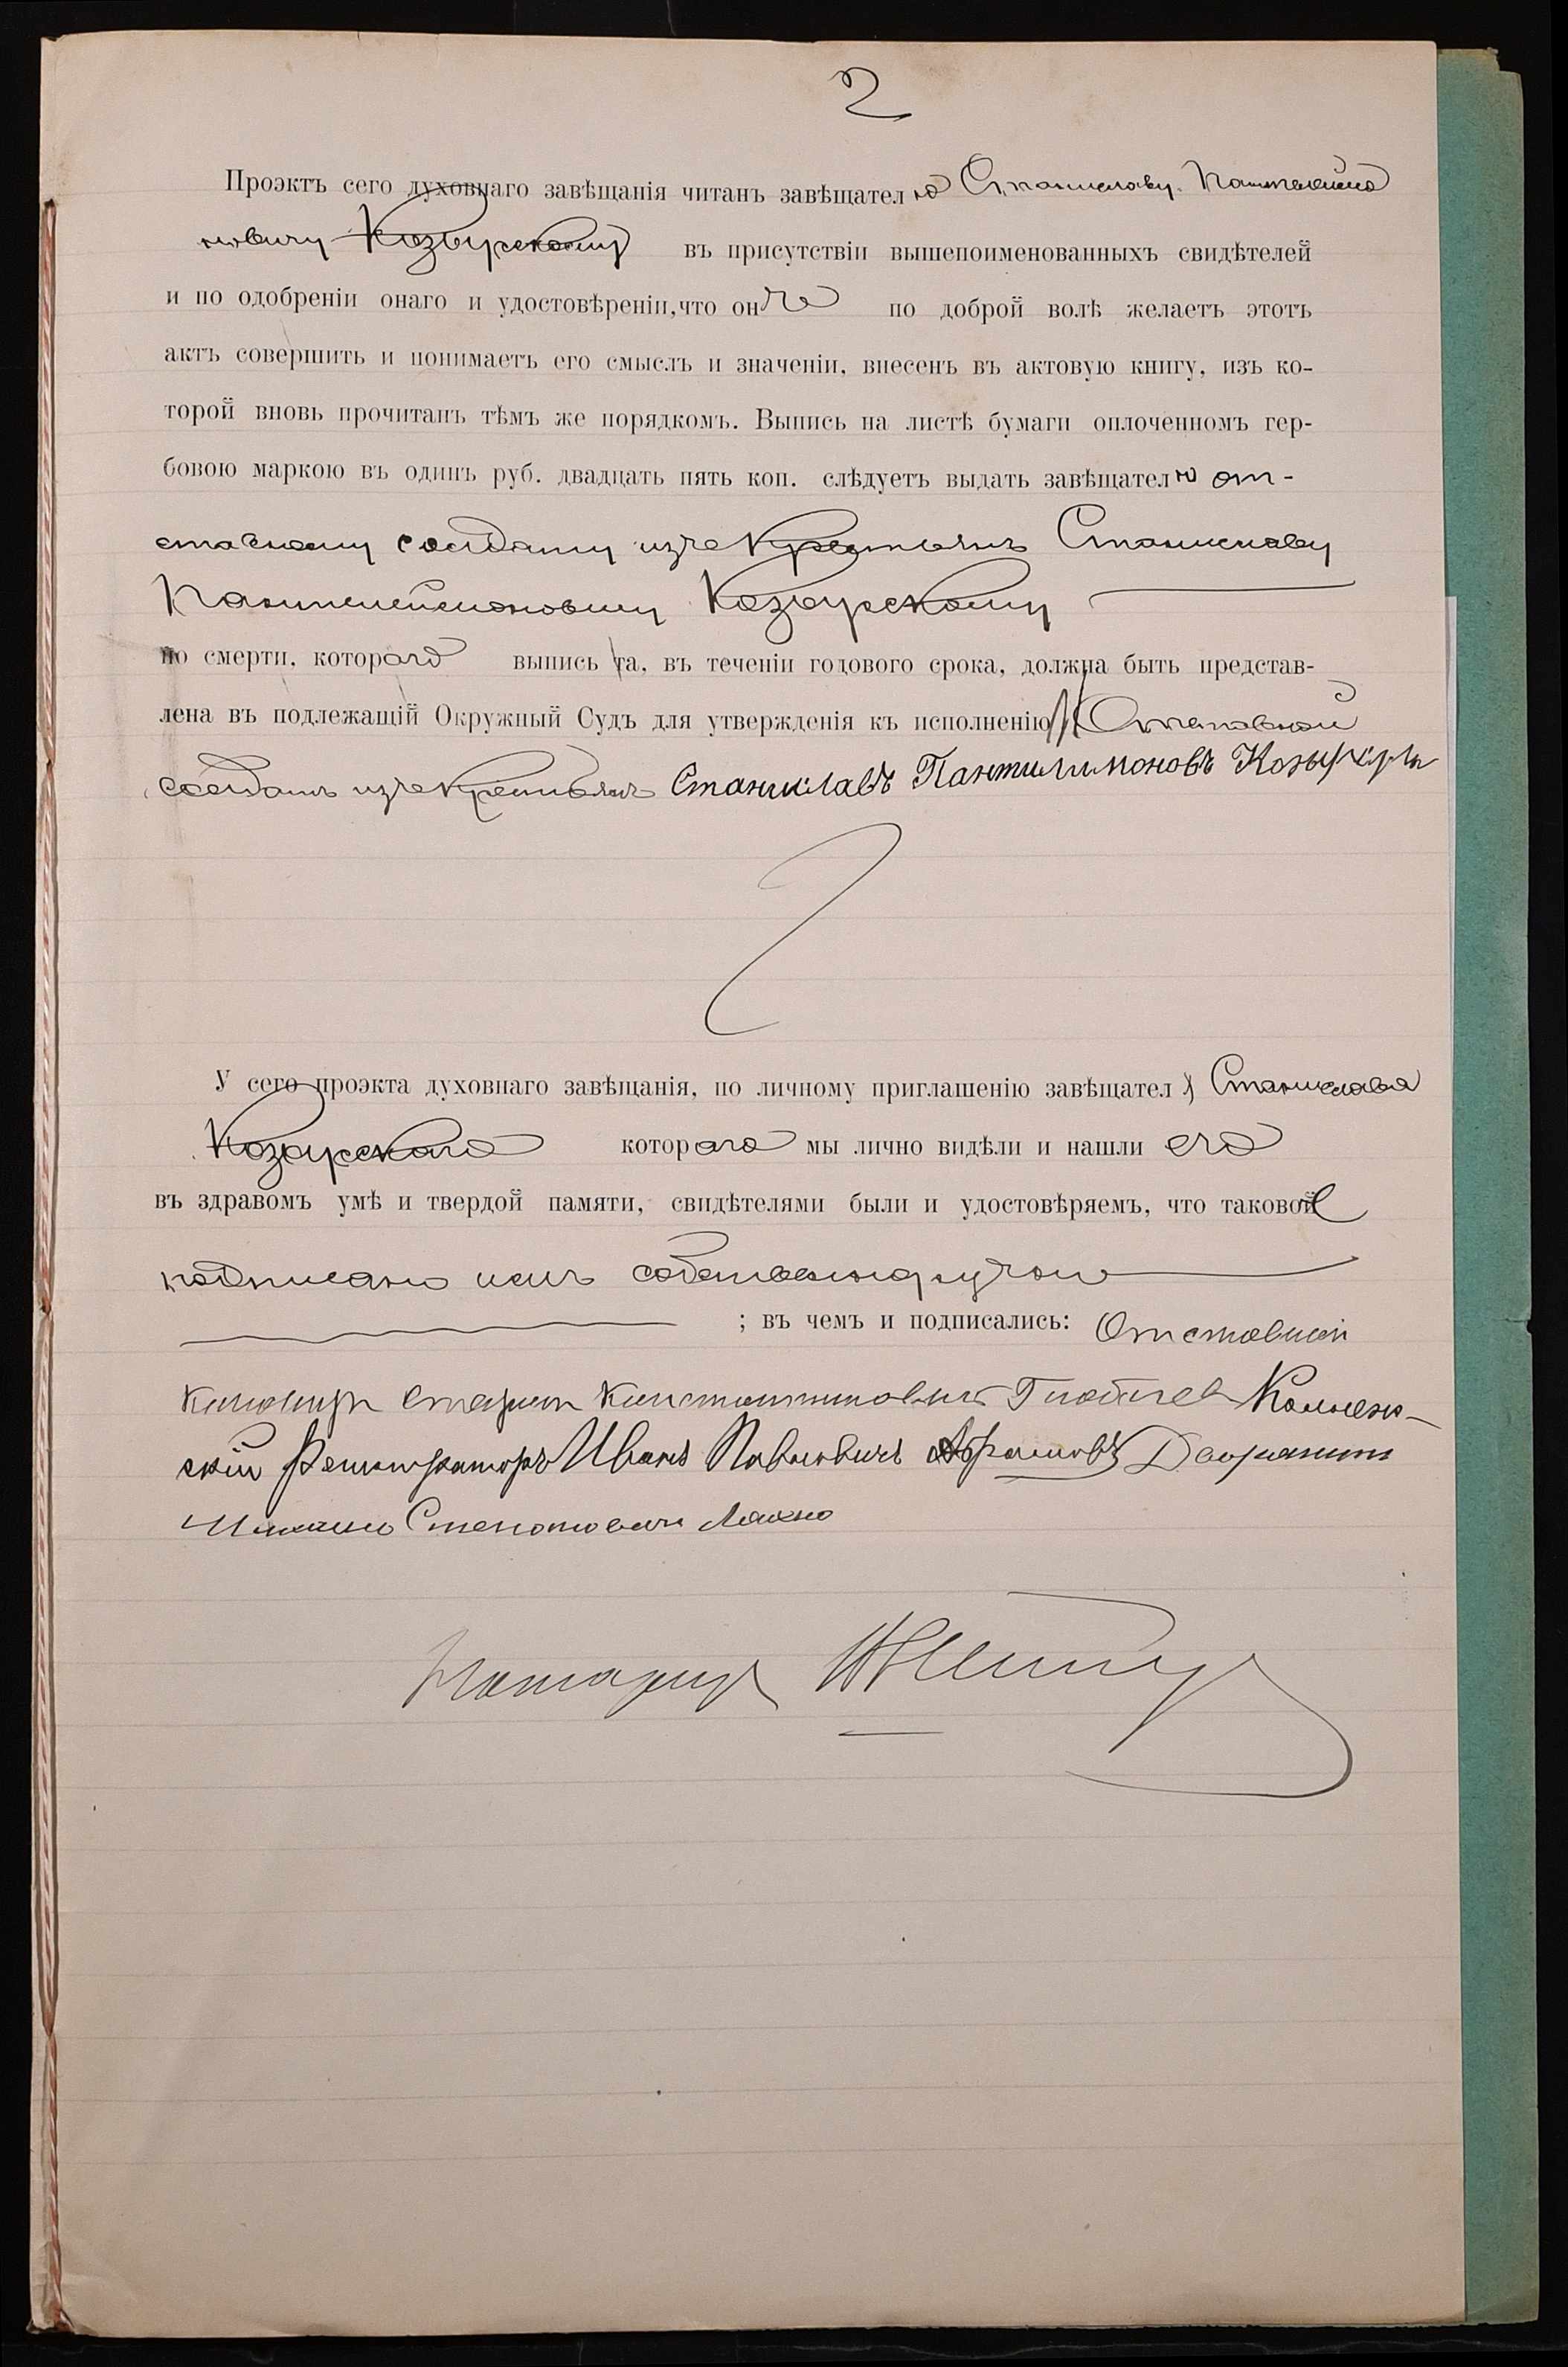 2
Проэктъ сего духовнаго завѣщанія читанъ завѣщателю Станиславу Пантелеймо
новичу Козырскому въ присутствіи вышепоименованныхъ свидѣтелей
и по одобреніи онаго и удостовѣреніи, что онъ по доброй волѣ желаетъ этотъ
актъ совершить и понимаетъ его смыслъ и значеніи, внесенъ въ актовую книгу, изъ ко-
торой вновь прочитанъ тѣмъ же порядкомъ. Выпись на листѣ бумаги оплоченномъ гер-
бовою маркою въ одинъ руб. двадцать пять коп. слѣдуетъ выдать завѣщателю от-
ставному солдату изъ крестьянъ Станиславу
Пантелеймоновичу Козырскому
по смерти, котораго выпись та, въ теченіи годового срока, должна быть представ-
лена въ подлежащій Окружный Судъ для утвержденія къ исполненію Отставной
солдатъ изъ крестьянъ Станиславъ Пантилимоновъ
У сего проэкта духовнаго завѣщанія, по личному приглашенію завѣщателя Станислава
Козырскаго котораго мы лично видѣли и нашли его
въ здравомъ умѣ и твердой памяти, свидѣтелями были и удостовѣряемъ, что таковой
подписано имъ собственноручно
; въ чемъ и подписались: Отставной
Коллеж-
скій Регистраторъ Иванъ Павловичъ Абрамовъ Дворянинъ
Степановичъ
Нотаріусъ